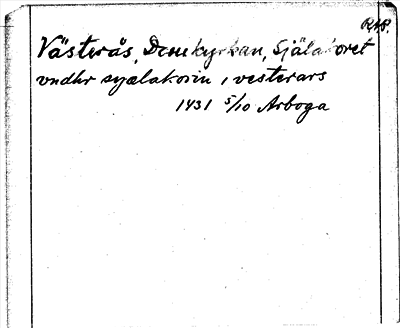 RAP.
Västerås, Domkyrkan, Själakoret
vndhr syælakorin i vesterars
1431 5/10 Arboga